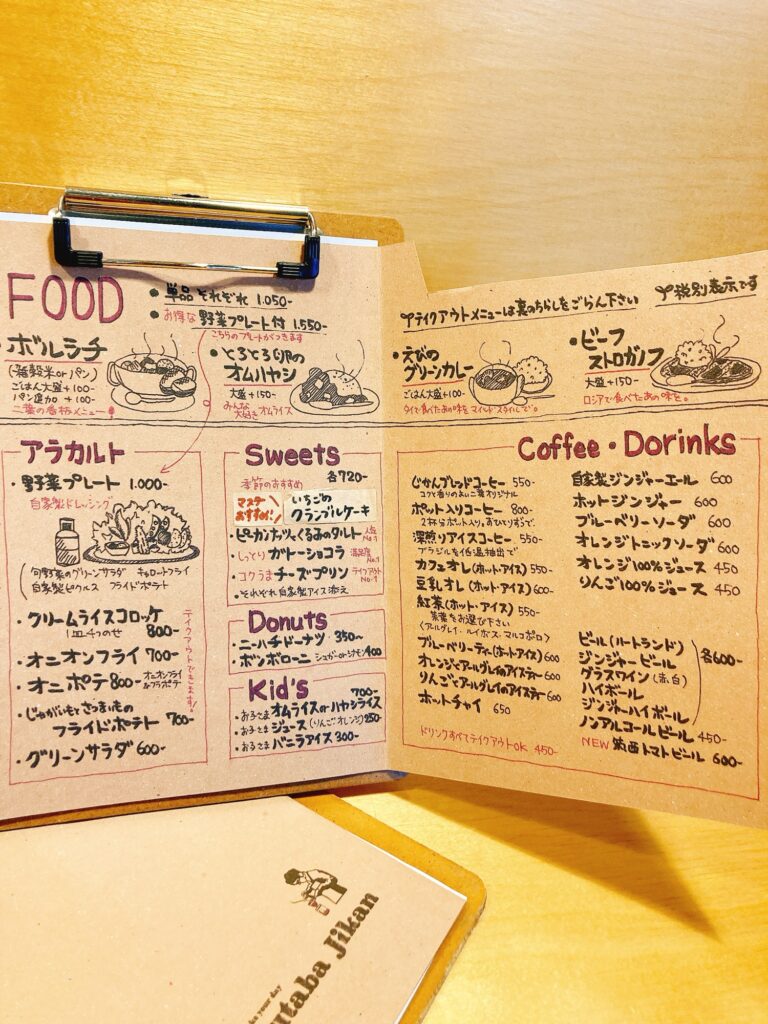 FOOD
• 単品 それぞれ 1.050-
• お得な 野菜プレート付 1.550-
こちらのプレートがつきます
• ボルシチ
(雑穀米orパン)
ごはん大盛+100-
パン追加 +100-
二葉の看板メニュー
• とろとろ卵の
オムハヤシ
大盛+150-
みんな
大好き オムライス
テイクアウトメニューは裏のちらしをごらん下さい
税別表示です
• えびの
グリーンカレー
ごはん大盛+100-
タイで食べたあの味をマイルドスタイルで。
• ビーフ
ストロガノフ
大盛+150-
ロシアで食べたあの味を。
アラカルト
• 野菜プレート 1.000-
自家製ドレッシング
旬野菜のグリーンサラダ キャロットフライ
自家製ピクルス フライドポテト
• クリームライスコロッケ
1皿4つのせ 800-
• オニオンフライ 700-
• オニポテ 800- オニオンフライ
&フラポテ
• じゃがいもとさつまいもの
フライドポテト 700-
• グリーンサラダ 600-
テイクアウトできます!
Sweets
各720-
季節のおすすめ
マスデ
おすすめ!
いちごの
クランブルケーキ
• ピーカンナッツとくるみのタルト 人気
No.1
• しっとり ガトーショコラ 満足度
No.1
• コクうま チーズプリン テイクアウト
No.1
• それぞれ自家製アイス添え
Donuts
• ニーハチドーナツ 350-
• ボンボローニ シュガーorシナモン 400
Kid's
700-
• お子さま オムライスorハヤシライス
• お子さま ジュース(りんごオレンジ) 250-
• お子さま バニラアイス 300-
Coffee・Dorinks
じかんブレッドコーヒー 550-
コクと香りのよい二葉オリジナル
ポット入りコーヒー 800-
2杯分ポット入り。
深煎りアイスコーヒー 550-
ブラジルを低温抽出で
カフェオレ(ホット・アイス) 550-
豆乳オレ(ホット・アイス) 600-
紅茶(ホット・アイス) 550-
茶葉をお選び下さい
(アールグレイ・ルイボス・マルコポーロ)
ブルーベリーティー(ホットアイス) 600
オレンジとアールグレイのアイスティー 600
りんごとアールグレイのアイスティー 600
ホットチャイ 650
ドリンクすべてテイクアウトOK 450-
自家製ジンジャーエール 600
ホットジンジャー 600
ブルーベリーソーダ 600
オレンジトニックソーダ 600
オレンジ100%ジュース 450
りんご100%ジュース 450
ビール(ハートランド)
ジンジャービール
グラスワイン(赤・白)
ハイボール
ジンジャーハイボール
各600-
ノンアルコールビール 450-
NEW 筑西トマトビール 600-
utaba Jikan